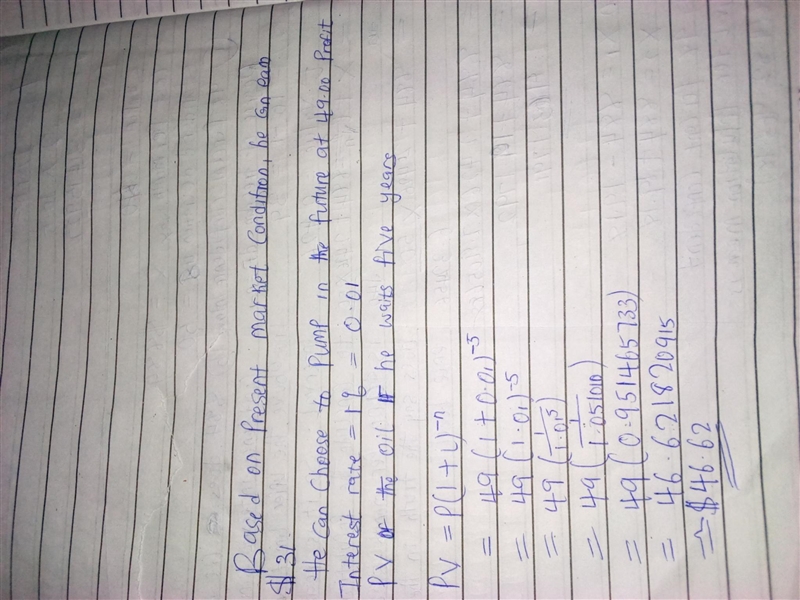 Based on Present market Condition, he can earn
$31
He Can Choose to Pump in the future at 49.00 Profit
Interest rate = 1% = 0.01
PV of the oil if he waits five years
PV = P(1+i)⁻ⁿ
= 49(1+0.01)⁻⁵
= 49(1.01)⁻⁵
= 49(1/1.01⁵)
= 49(1/1.051010)
= 49(0.951465733)
= 46.621820915
⇒ $46.62